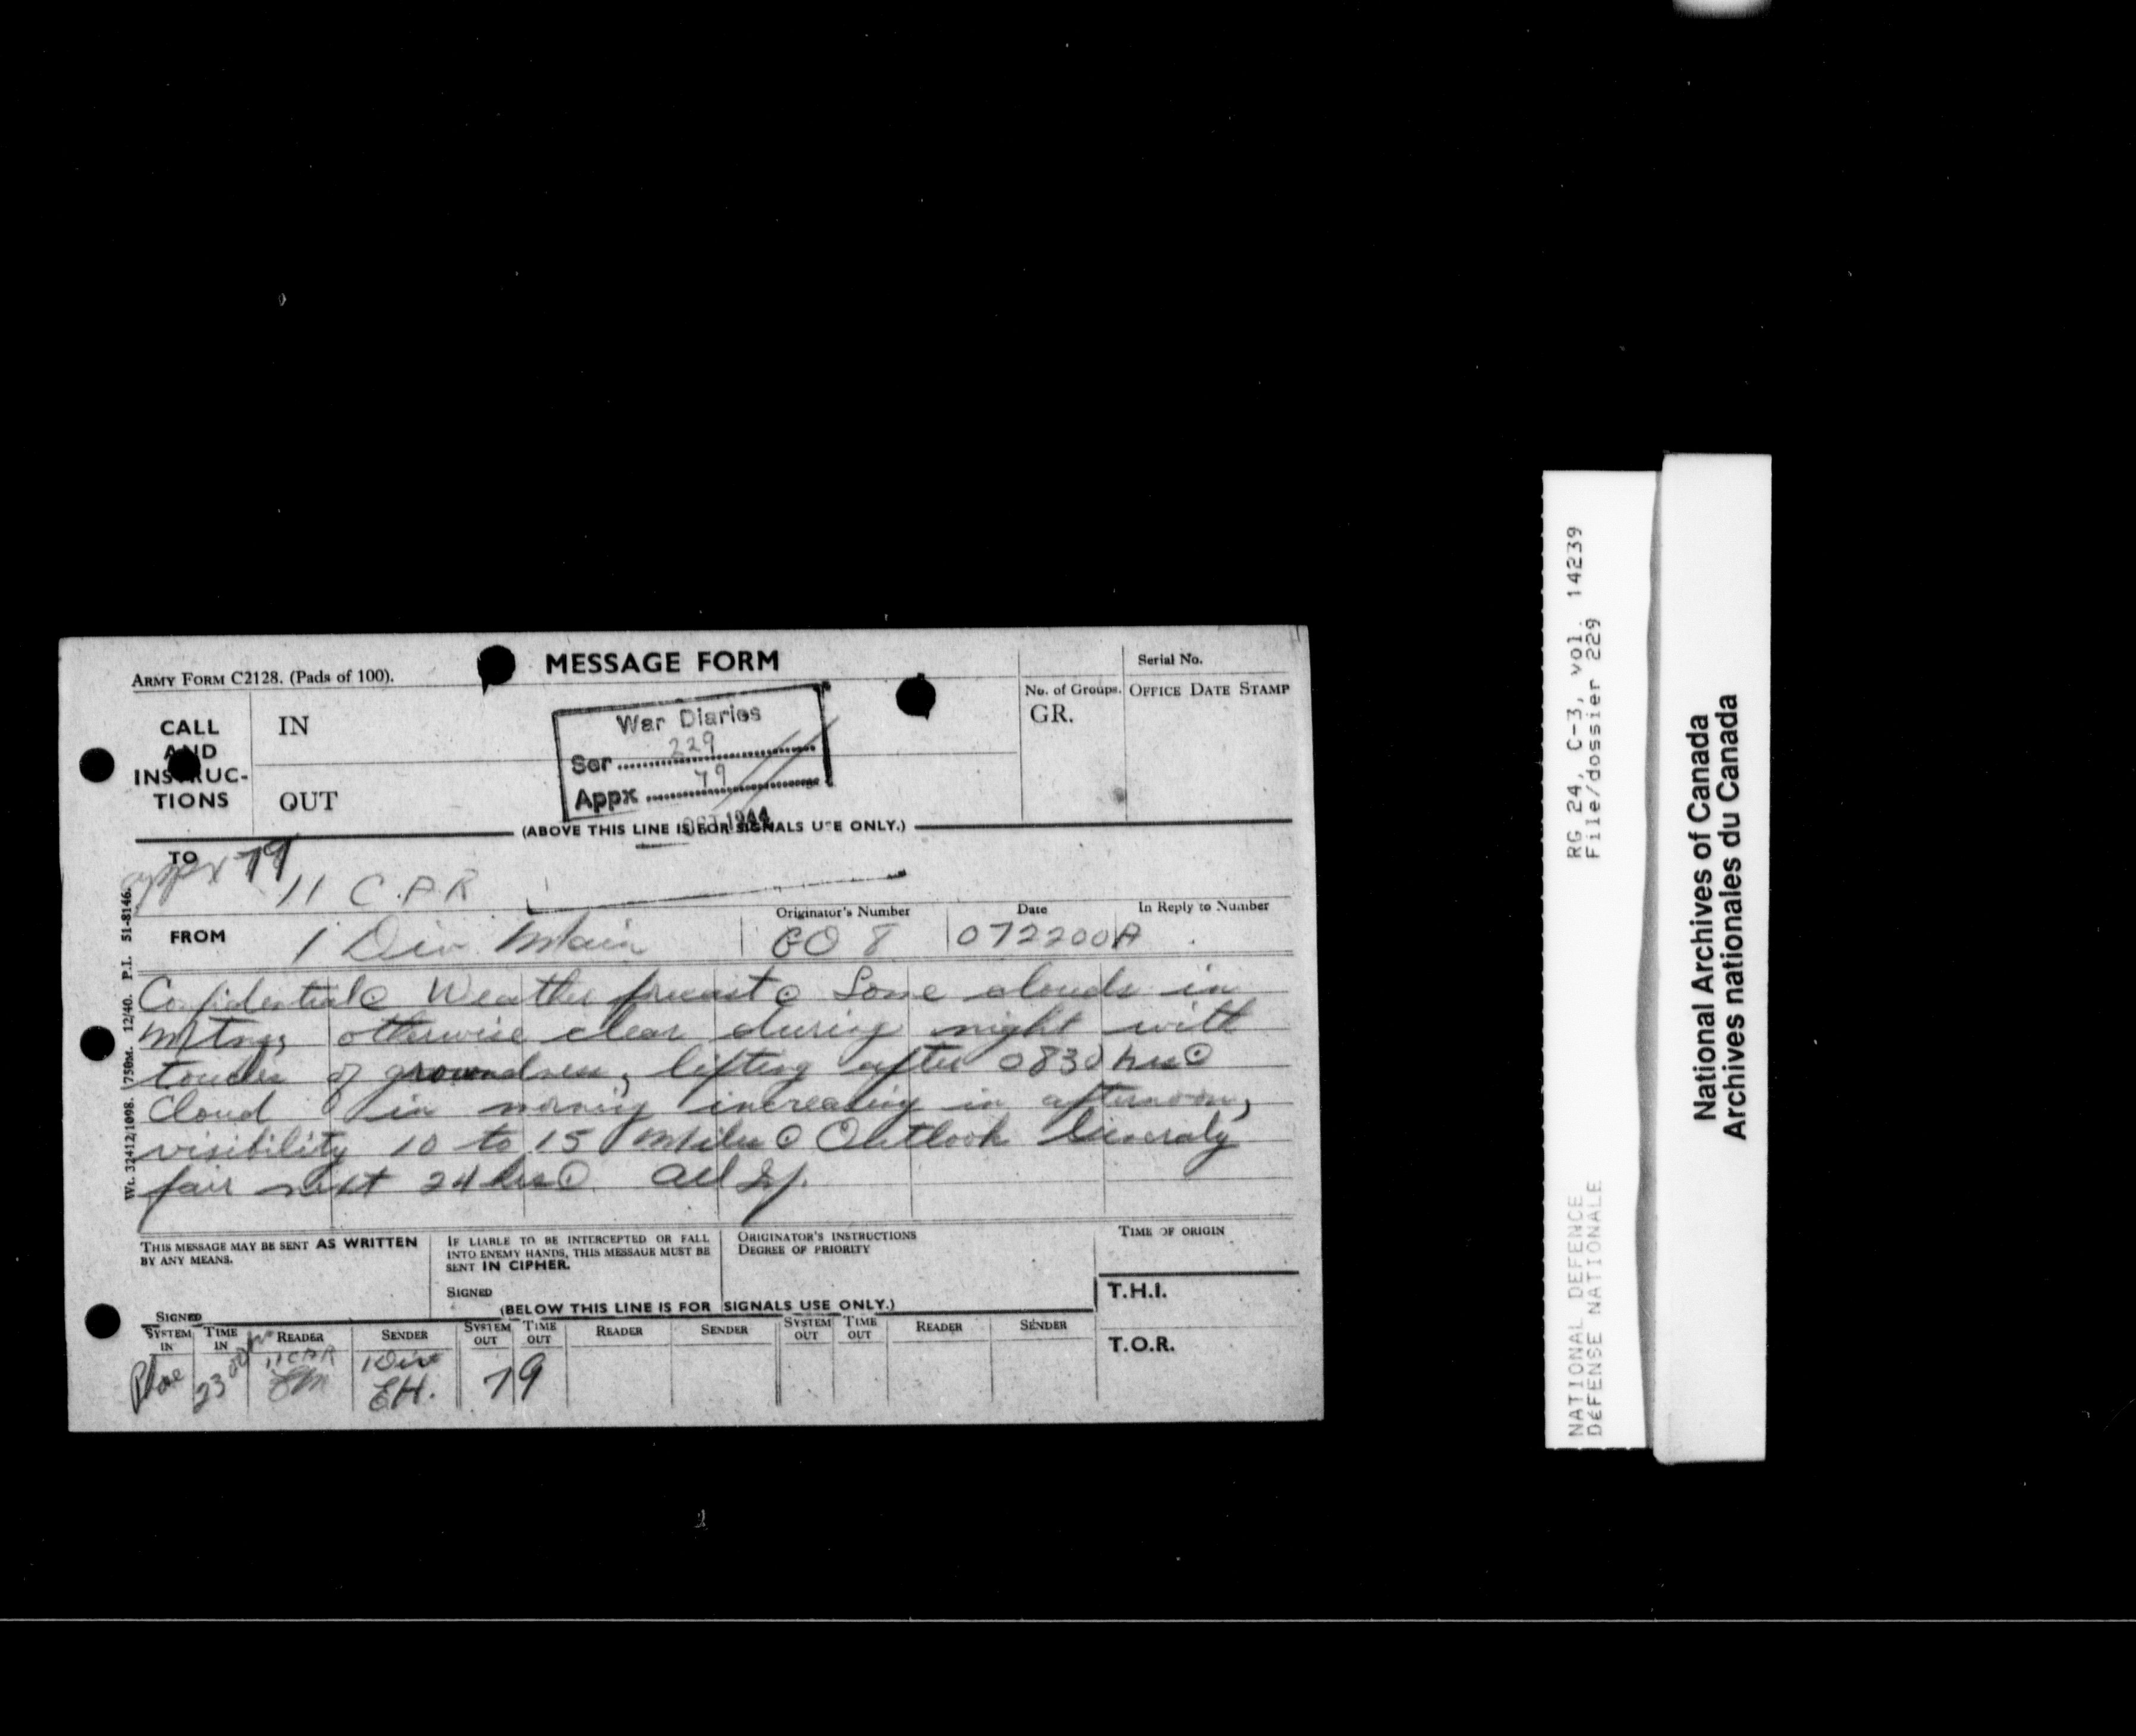 ARMY FORM C2128. (Pads of 100).
MESSAGE FORM
Serial No.
No. of Groups.
GR.
OFFICE DATE STAMP
CALL
AND
INSTRUC-
TIONS
IN
OUT
War Diaries
Ser 229
Appx 79
OCT 1944
(ABOVE THIS LINE IS FOR SIGNALS USE ONLY.)
TO
appx 79
11 C.P.R
FROM
1 Div Main
Originator's Number
GO 8
Date
072200A
In Reply to Number
Confidential Weather forecast Some clouds in
mtns, otherwise clear during night with
of lifting after 0830 hrs
Cloud in morning increasing in afternoon,
visibility 10 to 15 miles Outlook
fair next 24 hrs
Wt. 32412/1098. 750M. 12/40. P.I. 51-8146.
THIS MESSAGE MAY BE SENT AS WRITTEN
BY ANY MEANS.
SIGNED
IF LIABLE TO BE INTERCEPTED OR FALL
INTO ENEMY HANDS, THIS MESSAGE MUST BE
SENT IN CIPHER.
SIGNED
ORIGINATOR'S INSTRUCTIONS
DEGREE OF PRIORITY
TIME OF ORIGIN
T.H.I.
T.O.R.
(BELOW THIS LINE IS FOR SIGNALS USE ONLY.)
SYSTEM IN
TIME IN
READER
SENDER
SYSTEM OUT
TIME OUT
READER
SENDER
SYSTEM OUT
TIME OUT
READER
SENDER
Phone 2300 11 CPR 1 Div
EH. 79
RG 24, C-3, vol. 14239
File/dossier 229
NATIONAL DEFENCE
DÉFENSE NATIONALE
National Archives of Canada
Archives nationales du Canada